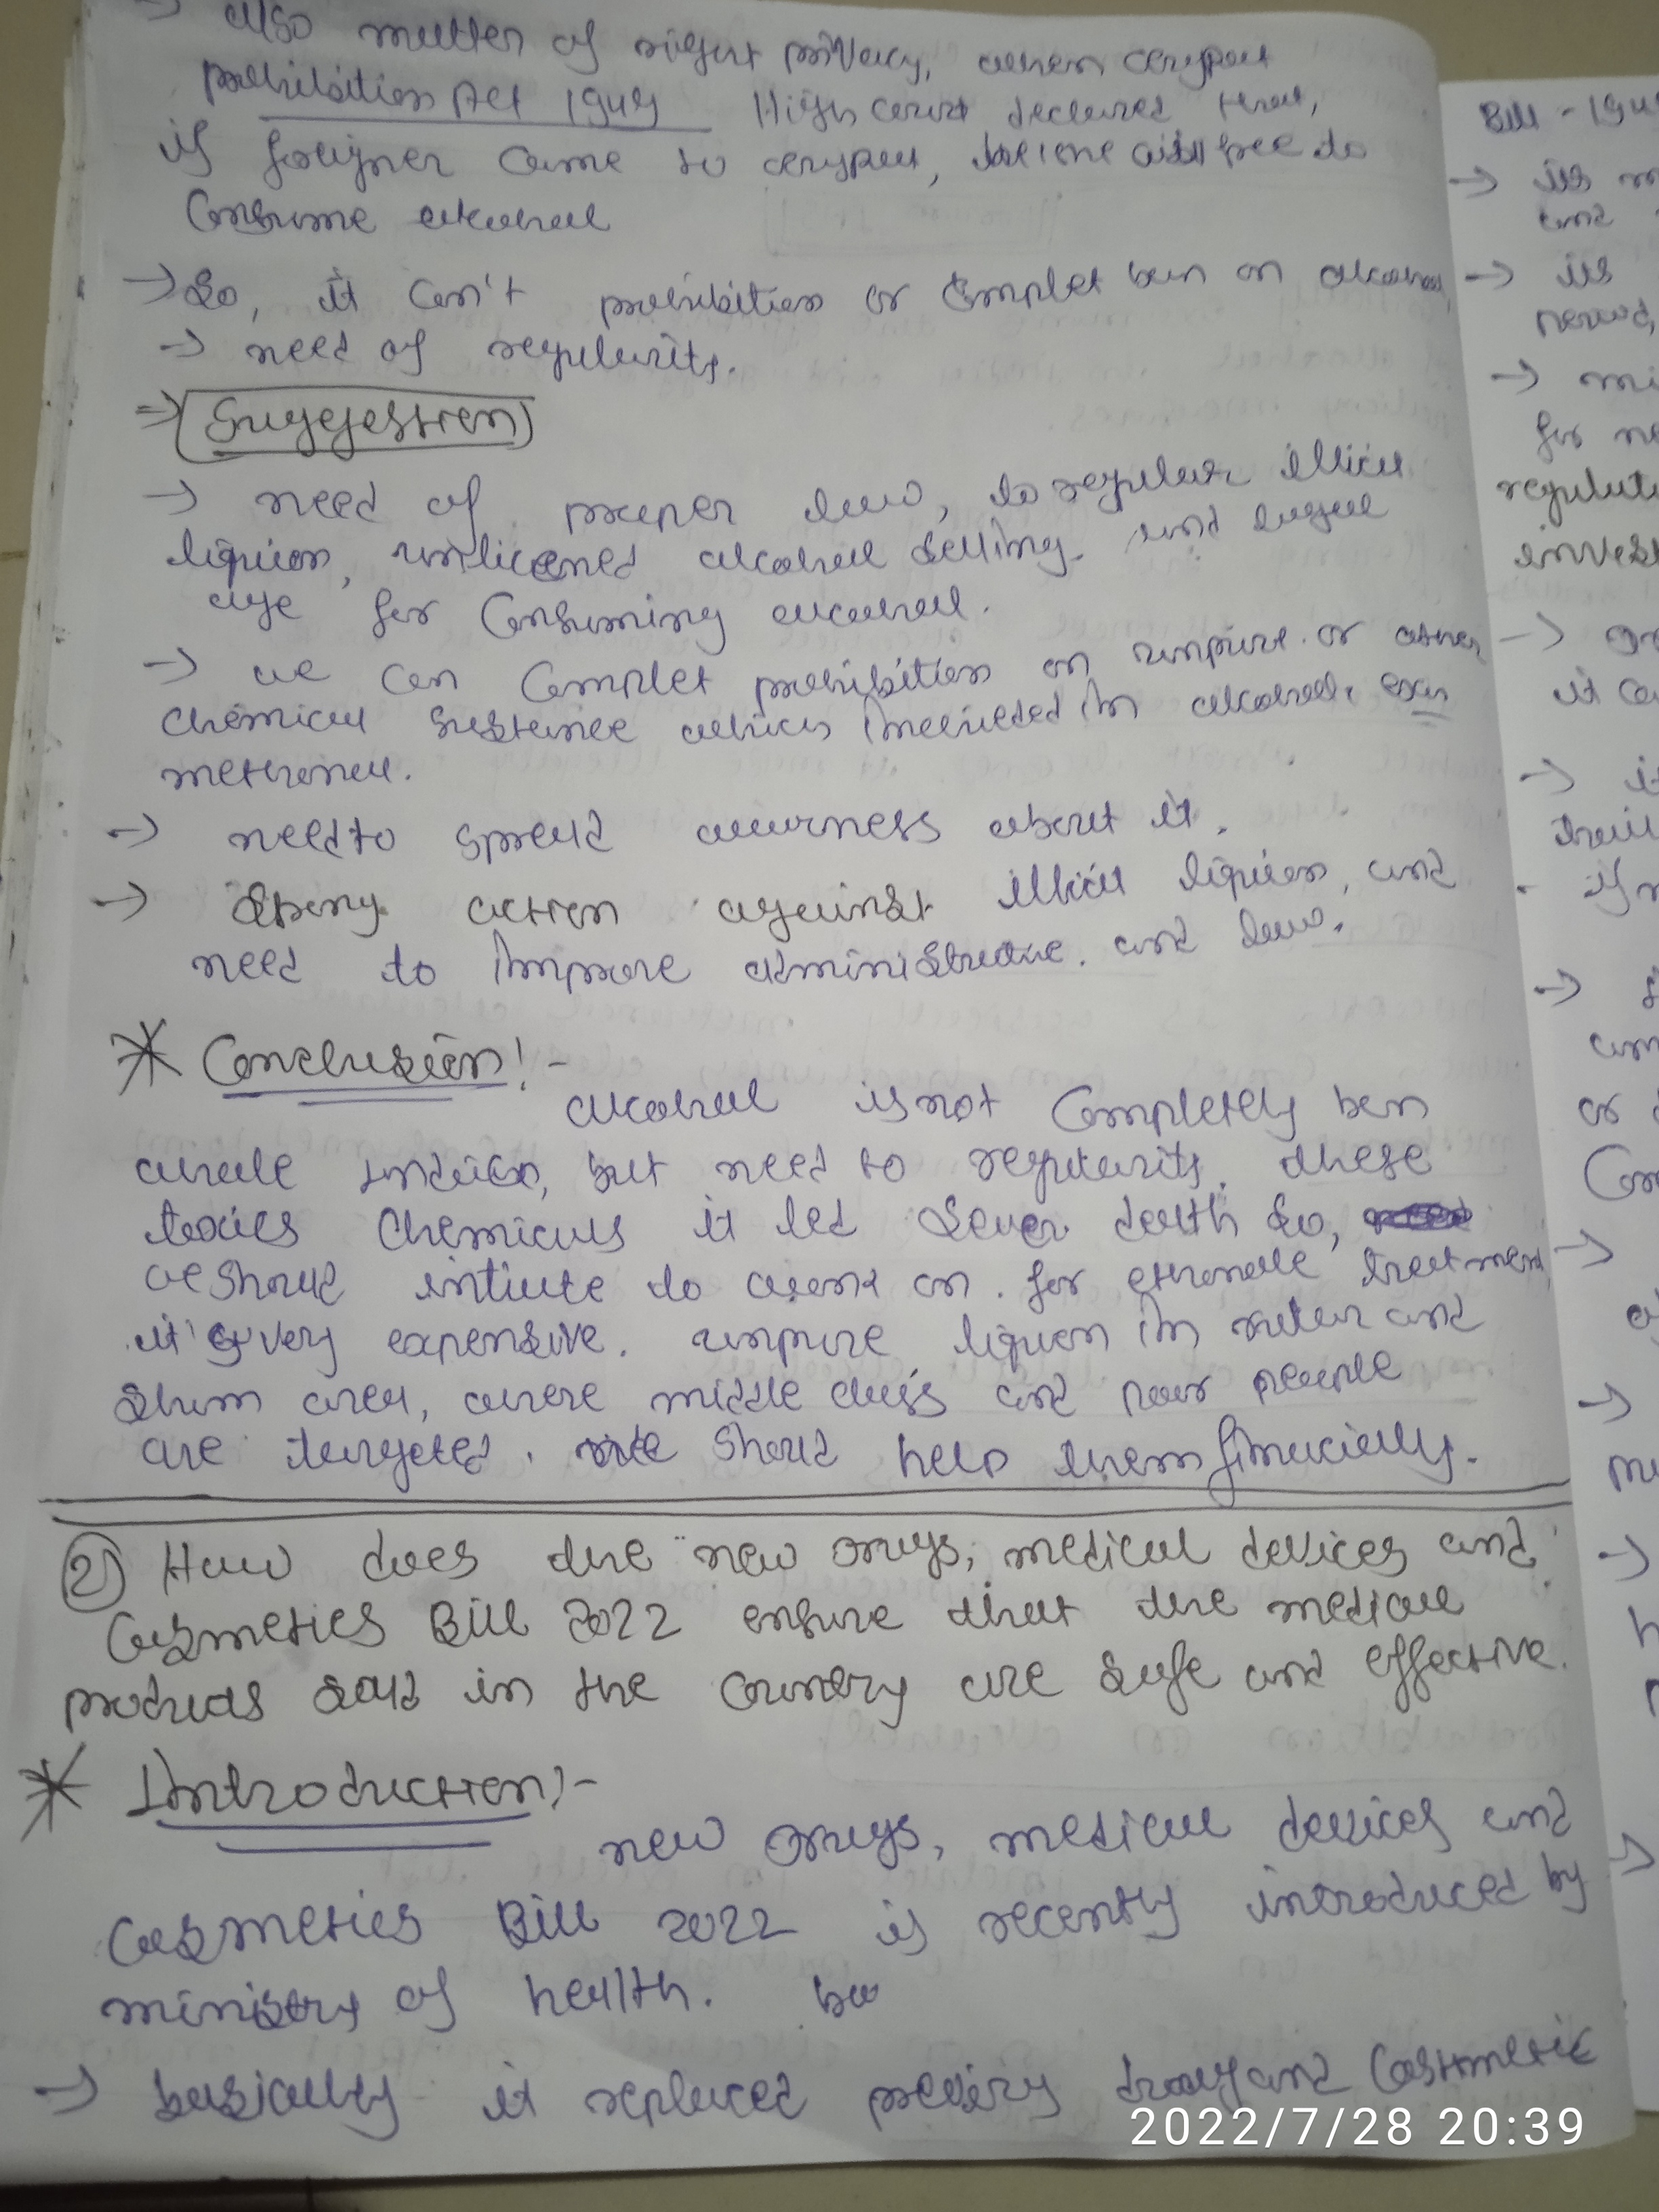 → also matter of right privacy, when
prohibition Act 1949 High court declared that,
if foreigner came to, free to
Consume alcohal
→ So, it can't prohibition or complet ban on alcohal,
→ need of regularity.
⇒ Suggestion
→ need of proper law, to regular illicit
liquior, unlicened alcohal selling. and legal
age for Consuming alcohal.
→ we can Complet prohibition on unpure. or other
chemical substance which included in alcohal. exm
methonal.
→ need to spread awarness about it.
→ Strong action against illicit liquior, and
need to improve administrative. and law.
* Conclusion!-
alcohal is not Completely ban
whole India, but need to regularity. these
toxics Chemicals it led sever death so,
we should intiate to on. for ethonale treatment,
it's very expensive. unpure liquor in and
slum area, where middle class and poor people
are targeted. we should help them finacially.
2) How does the new drugs, medical devices and
Cosmetics Bill 2022 ensure that the medical
products sold in the country are safe and effective.
* Introduction!-
new drugs, medical devices and
Cosmetics Bill 2022 is recently introduced by
ministry of health.
→ basically it replaced drug and Cosmetic
Bill - 194
→ its
and
→ its
period,
→ mi
for
regulati
invest
→
it ca
→ it
trail
if
→
or
Com
→
→
→
→
2022/7/28 20:39